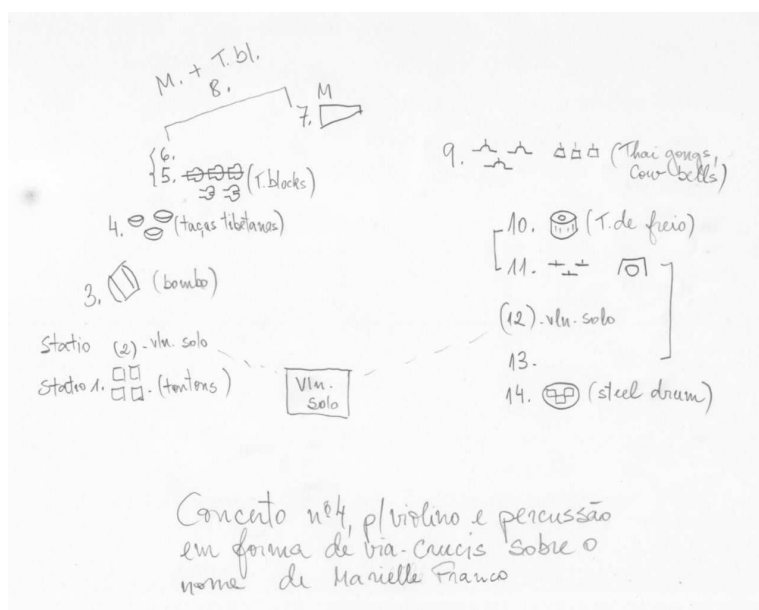 M. + T.bl.
8.
M
7.
6.
5. (T.blocks)
4. (taças tibetanas)
3. (bombo)
Statio (2) - vln. solo
Statio 1. (tontons)
Vln.
solo
9. (Thai gongs,
Cow bells)
10. (T. de freio)
11.
(12) - vln. solo
13.
14. (steel drum)
Concerto nº4, p/violino e percussão
em forma de via-crucis sobre o
nome de Marielle Franco